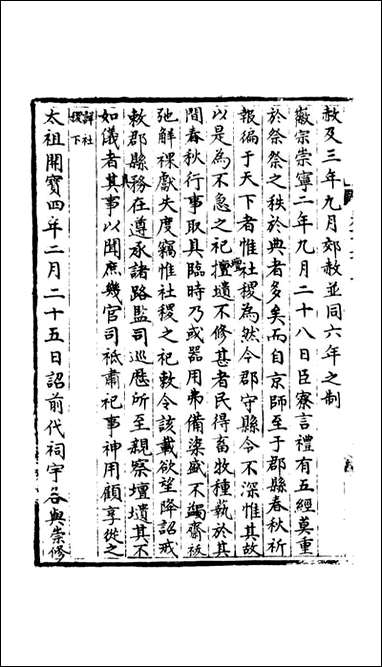 赦及三年九月郊赦並同六年之制
徽宗崇寧二年九月二十八日臣寮言禮有五經莫重
於祭祭之秩於典者多矣而自京師至于郡縣春秋祈
報徧于天下者惟社稷為然今郡守縣令不深惟其故
以是為不急之祀壇壝不修甚者民得畜牧種執於其
間春秋行事取具臨時乃或器用弗備粢盛不蠲齋祓
弛解祼獻失度竊惟社稷之祀敕令該載欲望降詔戒
敕郡縣務在遵承諸路監司巡歷所至親察壇壝其不
如儀者具其事以聞庶幾官司祗肅祀事神用顧享從之
詳社
稷下
太祖開寶四年二月二十五日詔前代祠宇各與崇修